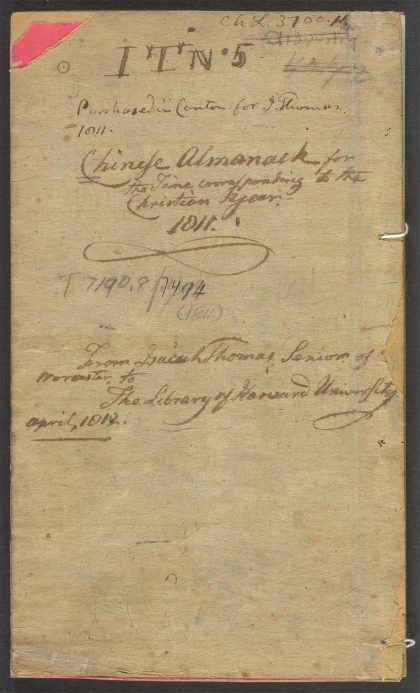 Ch L 3700.14
I T N. 5
Purchased in Canton for I. Thomas.
1811.
Chinese Almanack for
the Time corresponding to the
Christian Year.
1811.
T 7190.8/7494
(1811)
From Isaiah Thomas, Senior, of
Worcester, to
The Library of Harvard University.
april, 1812.